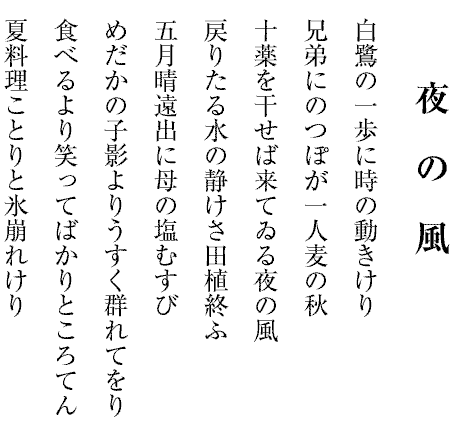 夜の風
白鷺の一歩に時の動きけり
兄弟にのつぽが一人麦の秋
十薬を干せば来てゐる夜の風
戻りたる水の静けさ田植終ふ
五月晴遠出に母の塩むすび
めだかの子影よりうすく群れてをり
食べるより笑ってばかりところてん
夏料理ことりと氷崩れけり